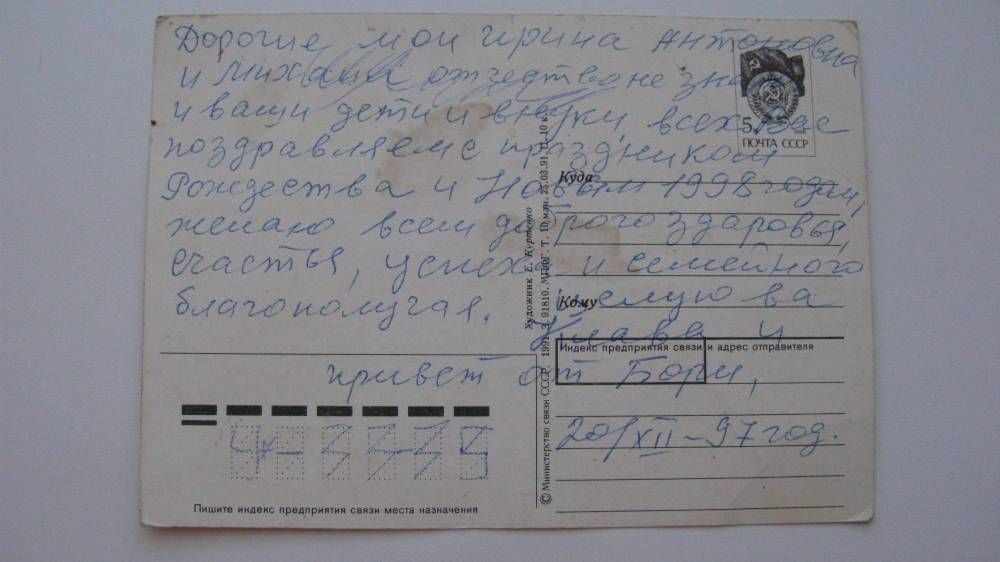 Дорогие мои Ирина Антоновна
и Михаил отчество не зна
и ваши дети и внуки, всех вас
поздравляем с праздником
Рождества и Новым 1998 годом,
желаю всем доброго здаровья,
счастья, успехов и семейного
благополучая. целую ва
Клава и
привет от Бори,
20/XII-97 год.
5к
1988
ПОЧТА СССР
Куда
Кому
Индекс предприятия связи и адрес отправителя
Пишите индекс предприятия связи места назначения
Художник Е. Куртенко
© Министерство связи СССР. 1991. З. 91810. МПФГ. Т. 10 млн. 25.03.91. Ц. 10 к.